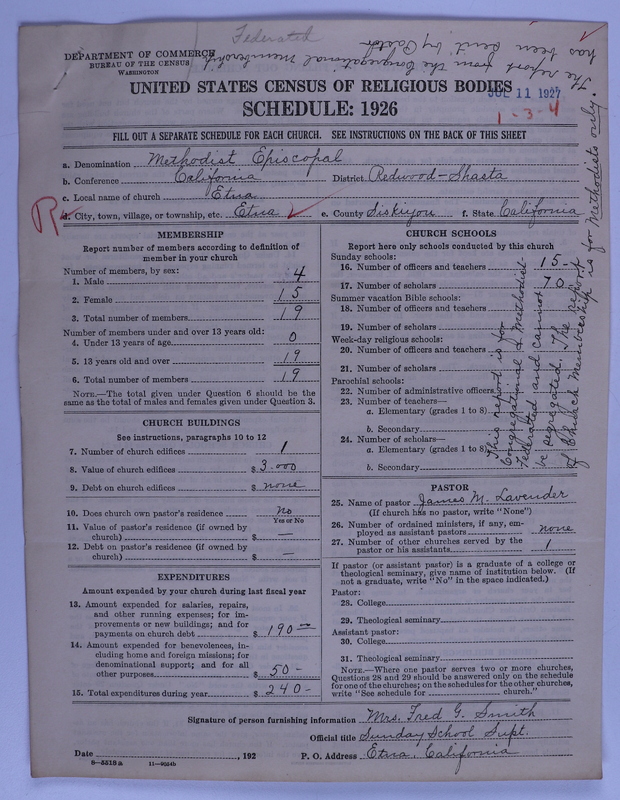 Federated
The report from the Congregational membership
has been sent by Pastor
DEPARTMENT OF COMMERCE
BUREAU OF THE CENSUS
WASHINGTON
UNITED STATES CENSUS OF RELIGIOUS BODIES
JUL 11 1927
SCHEDULE: 1926
1-3-4
FILL OUT A SEPARATE SCHEDULE FOR EACH CHURCH. SEE INSTRUCTIONS ON THE BACK OF THIS SHEET
a. Denomination Methodist Episcopal
b. Conference California District Redwood-Shasta
c. Local name of church Etna
R d. City, town, village, or township, etc. Etna e. County Siskiyou f. State California
MEMBERSHIP
Report number of members according to definition of
member in your church
Number of members, by sex:
1. Male 4
2. Female 15
3. Total number of members 19
Number of members under and over 13 years old:
4. Under 13 years of age 0
5. 13 years old and over 19
6. Total number of members 19
NOTE.—The total given under Question 6 should be
same as the total of males and females given under Question 3.
CHURCH BUILDINGS
See instructions, paragraphs 10 to 12
7. Number of church edifices 1
8. Value of church edifices $ 3.000
9. Debt on church edifices $ none
10. Does church own pastor's residence No
Yes or No
11. Value of pastor's residence (if owned by
church) $ —
12. Debt on pastor's residence (if owned by
church) $ —
EXPENDITURES
Amount expended by your church during last fiscal year
13. Amount expended for salaries, repairs,
and other running expenses; for im-
provements or new buildings; and for
payments on church debt $ 190—
14. Amount expended for benevolences, in-
cluding home and foreign missions; for
denominational support; and for all
other purposes $ 50-
15. Total expenditures during year $ 240-
CHURCH SCHOOLS
Report here only schools conducted by this church
Sunday schools:
16. Number of officers and teachers 15-
17. Number of scholars 70
Summer vacation Bible schools:
18. Number of officers and teachers
19. Number of scholars
Week-day religious schools:
20. Number of officers and teachers
21. Number of scholars
Parochial schools:
22. Number of administrative officers
23. Number of teachers—
a. Elementary (grades 1 to 8)
b. Secondary
24. Number of scholars—
a. Elementary (grades 1 to 8)
b. Secondary
This report is for
Congregational & Methodist-
Federated and cannot
be segregated. The report
of Church Membership is for Methodists only.
PASTOR
25. Name of pastor James M. Lavender
(If church has no pastor, write "None")
26. Number of ordained ministers, if any, em-
ployed as assistant pastors none
27. Number of other churches served by the
pastor or his assistants 1
If pastor (or assistant pastor) is a graduate of a college or
theological seminary, give name of institution below. (If
not a graduate, write "No" in the space indicated.)
Pastor:
28. College
29. Theological seminary
Assistant pastor:
30. College
31. Theological seminary
NOTE.—Where one pastor serves two or more churches,
Questions 28 and 29 should be answered only on the schedule
for one of the churches; on the schedules for the other churches,
write "See schedule for church."
Signature of person furnishing information Mrs. Fred G. Smith
Official title Sunday School Supt.
Date , 192 P. O. Address Etna, California
8—5518a 11—9054b